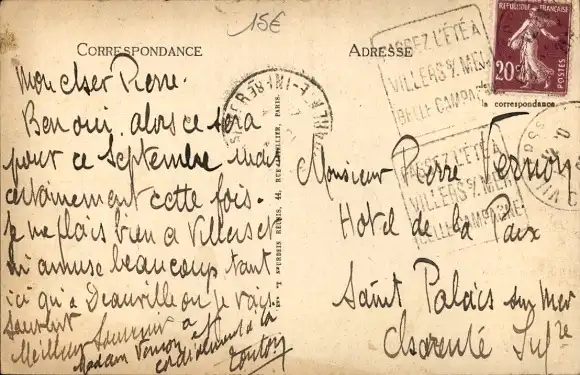 15€
CORRESPONDANCE
Mon cher Pierre.
Ben oui, alors ce sera
pour ce Septembre mais
certainement cette fois.
Je me plais bien a Villers et
m'amuse beaucoup tant
ici qu'a Deauville ou je vais
souvent
Meilleur Souvenir a
Madame Vernon et
cordialement a toi
ADRESSE
RÉPUBLIQUE FRANÇAISE
20c
POSTES
la correspondance
PASSEZ L'ÉTÉ A
VILLERS S/ MER
BELLE CAMPAGNE
PASSEZ L'ÉTÉ A
VILLERS S/ MER
BELLE CAMPAGNE
Monsieur Pierre Vernon
Hotel de la Paix
Saint Palais sur Mer
Charente Infre